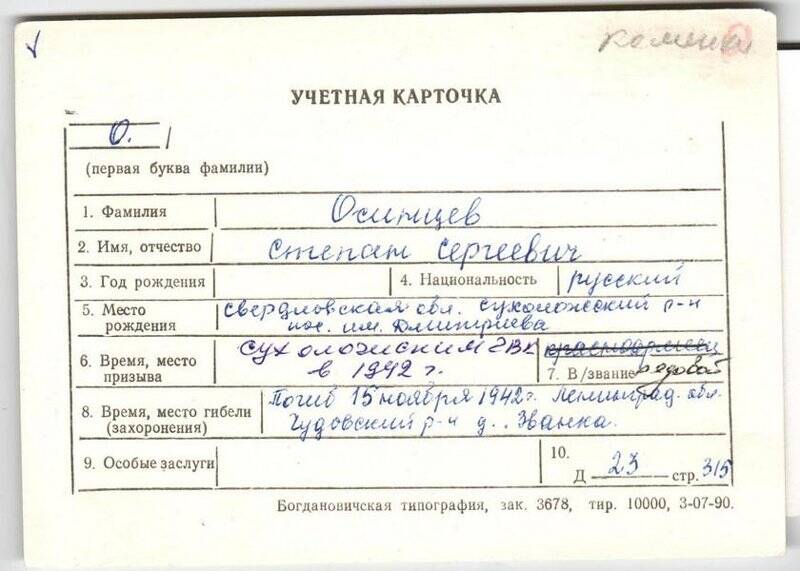 УЧЕТНАЯ КАРТОЧКА
О.
(первая буква фамилии)
1. Фамилия Осинцев
2. Имя, отчество Степан Сергеевич
3. Год рождения 4. Национальность русский
5. Место рождения Свердловская обл. Сухоложский р-н
пос. им. Дмитриева
6. Время, место призыва Сухоложским РВК
в 1942 г.
красноармеец
7. В/звание рядовой
8. Время, место гибели (захоронения) Погиб 15 ноября 1942г. Ленинград. обл.
Чудовский р-н д. Званка.
9. Особые заслуги
10.
Д 23 стр. 315
Богдановичская типография, зак. 3678, тир. 10000, 3-07-90.